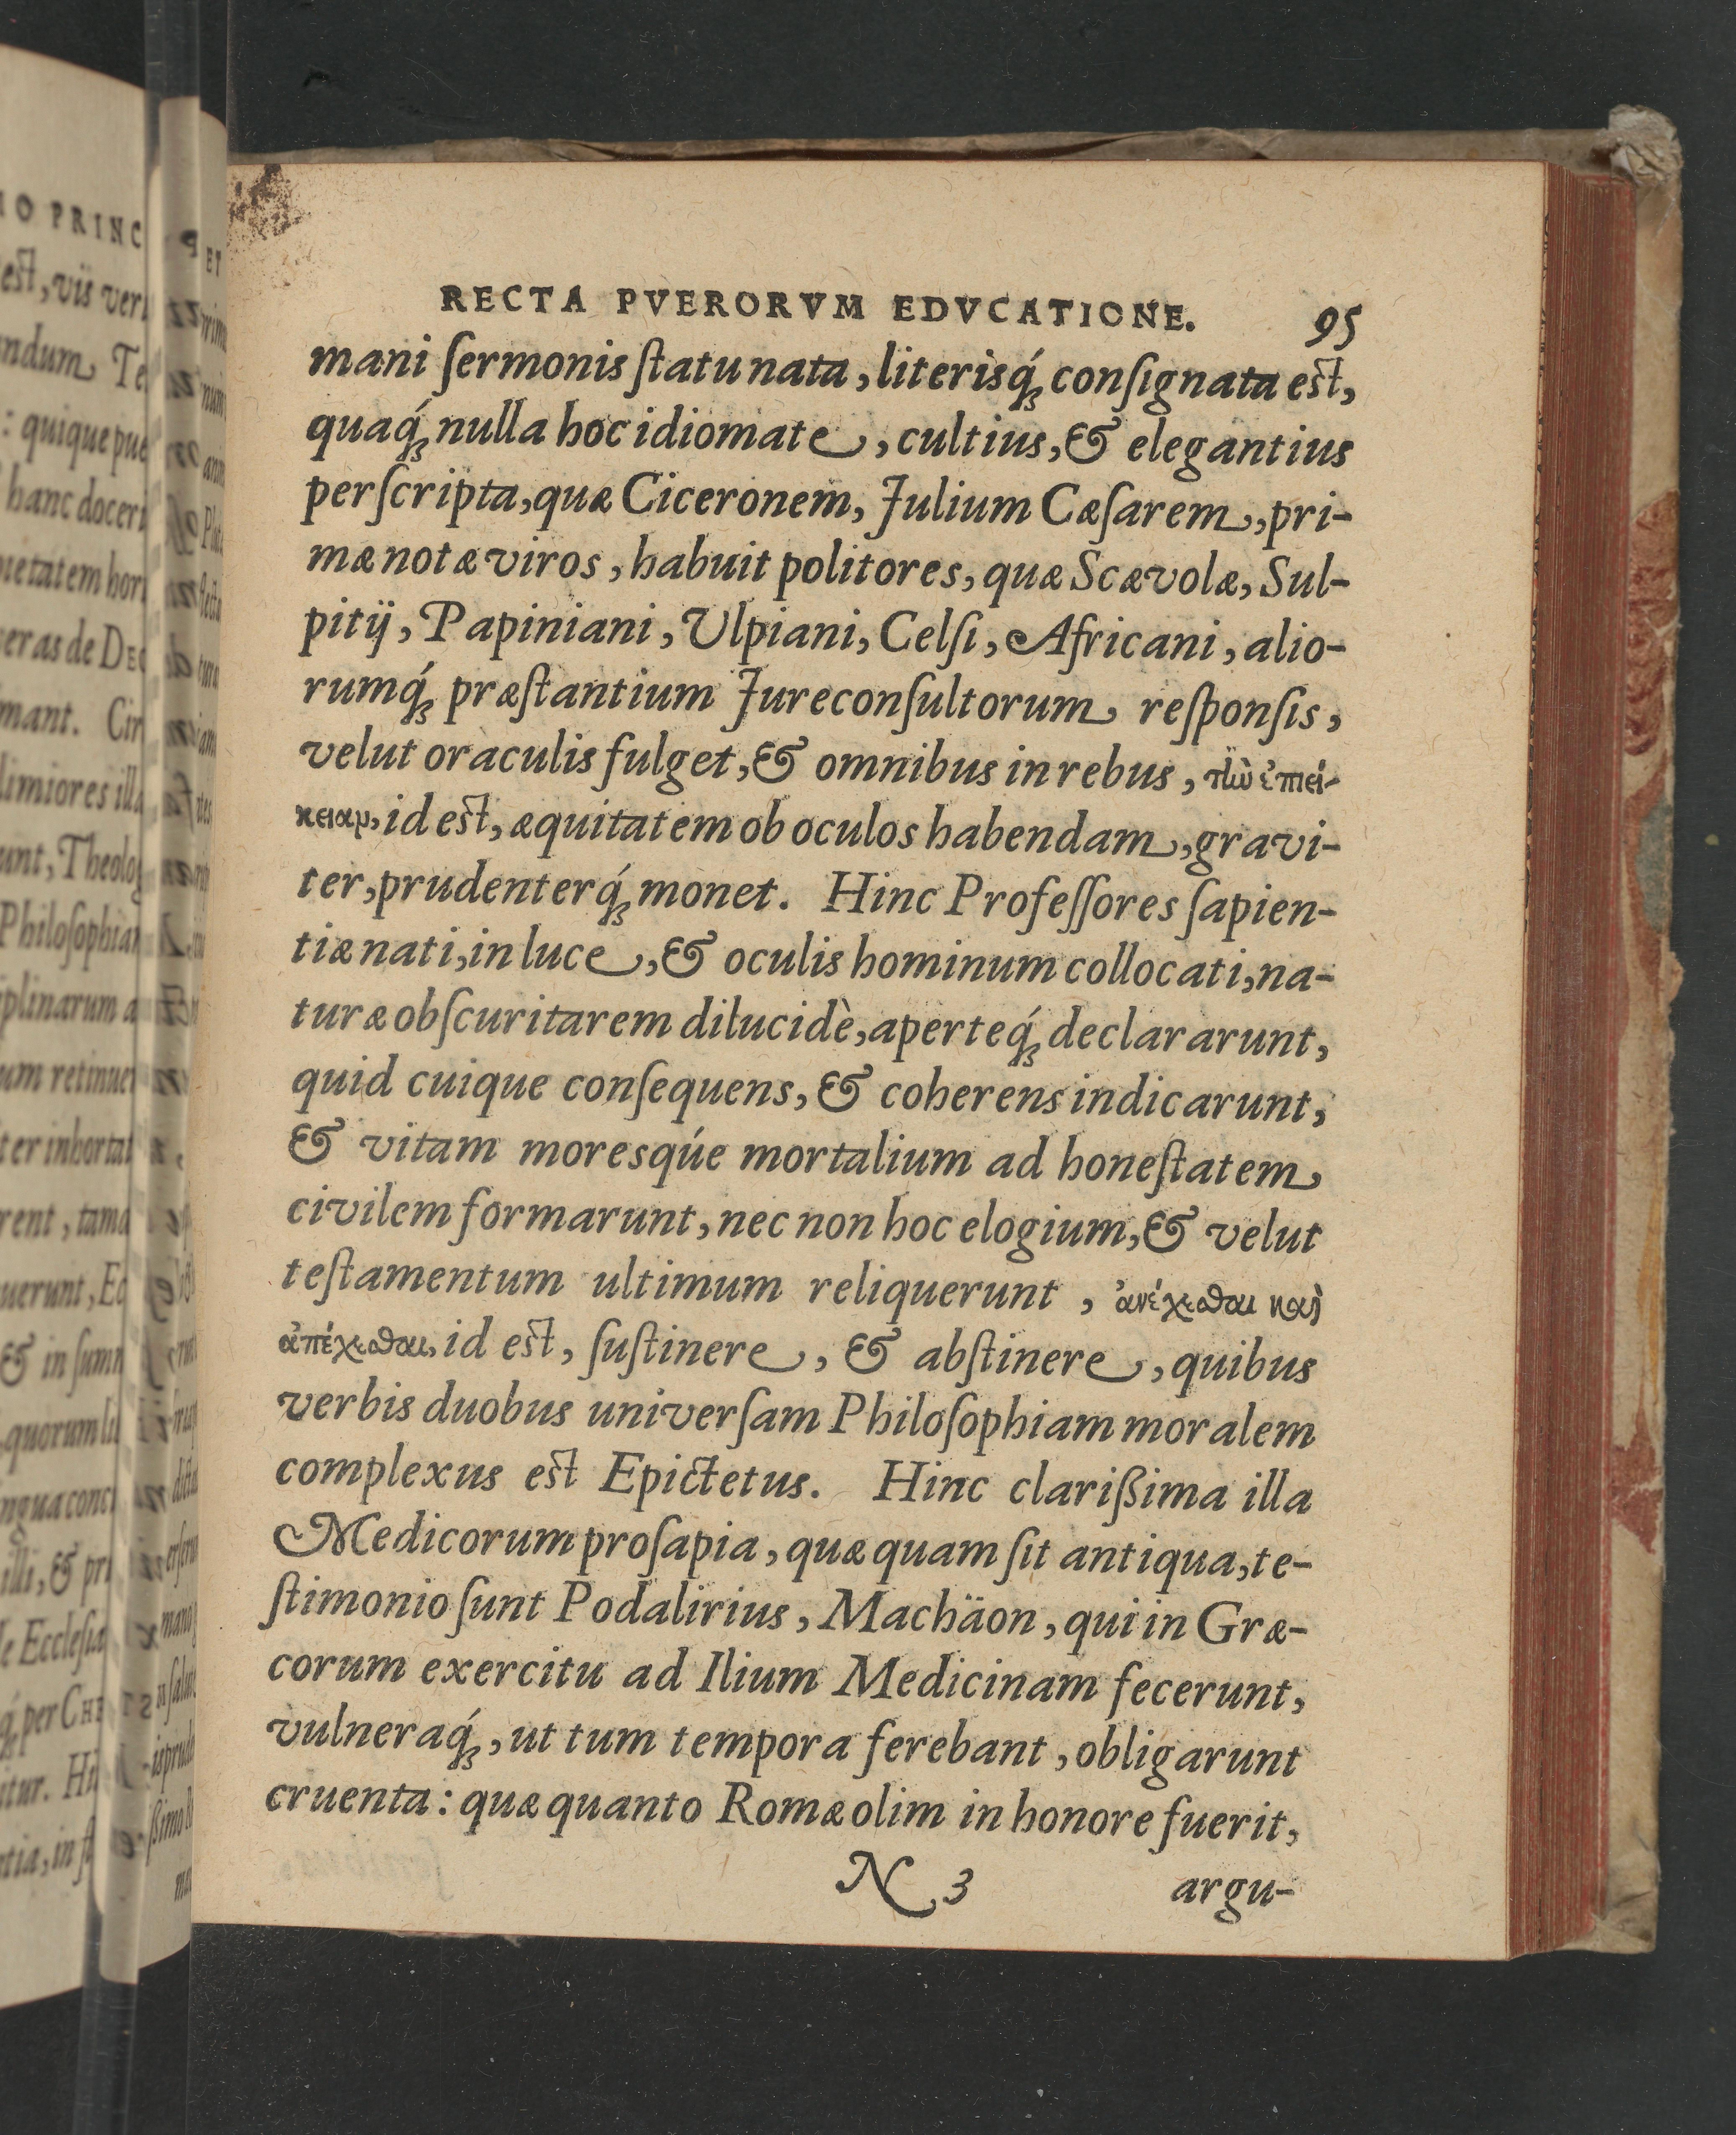 RECTA PVERORVM EDVCATIONE. 95
mani ſermonis ſtatu nata, literisq́ꝫ conſignata est,
quaq́ꝫ nulla hoc idiomate, cultius, & elegantius
perſcripta, quæ Ciceronem, Julium Cæſarem, pri-
mæ notæ viros, habuit politores, quæ Scævolæ, Sul-
pitij, Papiniani, Ulpiani, Celſi, Africani, alio-
rumq́ꝫ præſtantium Jureconſultorum reſponſis,
velut oraculis fulget, & omnibus in rebus, τὴν ἐπιεί-
κειαν, id est, æquitatem ob oculos habendam, gravi-
ter, prudenterq́ꝫ monet. Hinc Profeſſores ſapien-
tiæ nati, in luce, & oculis hominum collocati, na-
turæ obſcuritarem dilucidè, aperteq́ꝫ declararunt,
quid cuique conſequens, & coherens indicarunt,
& vitam moresqúe mortalium ad honeſtatem
civilem formarunt, nec non hoc elogium, & velut
teſtamentum ultimum reliquerunt, ἀνέχεσθαι καὶ
ἀπέχεσθαι, id est, ſuſtinere, & abſtinere, quibus
verbis duobus univerſam Philoſophiam moralem
complexus est Epictetus. Hinc clarißima illa
Medicorum proſapia, quæ quam ſit antiqua, te-
ſtimonio ſunt Podalirius, Machäon, qui in Græ-
corum exercitu ad Ilium Medicinam fecerunt,
vulneraq́ꝫ, ut tum tempora ferebant, obligarunt
cruenta: quæ quanto Romæ olim in honore fuerit,
N 3 argu-